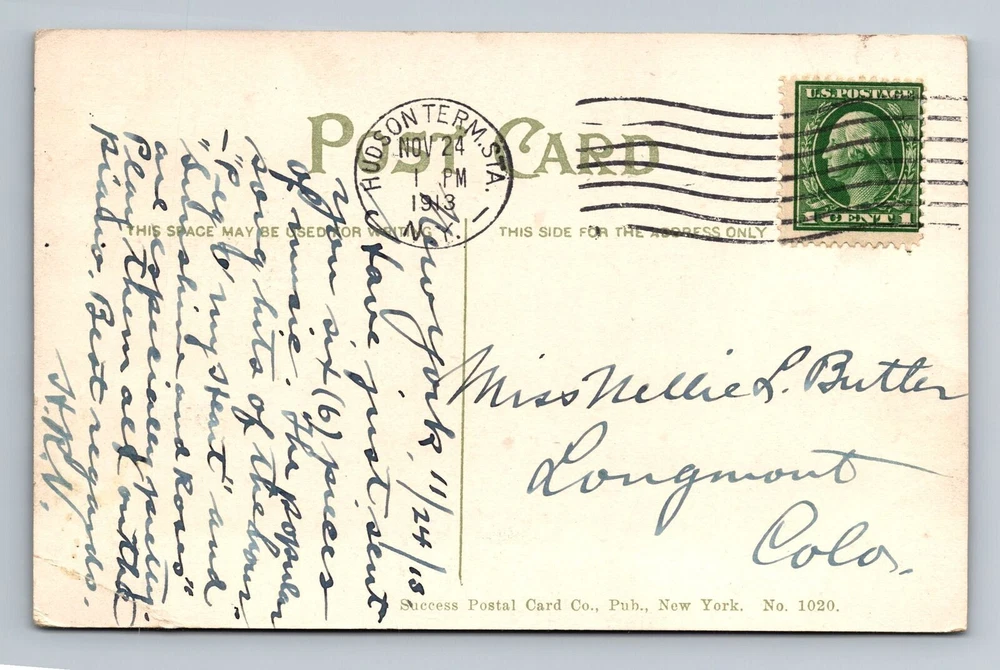 POST CARD
THIS SPACE MAY BE USED FOR WRITING
THIS SIDE FOR THE ADDRESS ONLY
HUDSON TERM. STA.
NOV 24
1 PM
1913
N.Y.
1
U.S. POSTAGE
1 CENT 1
New York 11/24/13
Have just sent
you six (6) pieces
of music. The popular
song hits of the hour
- "Peg o' my Heart" and
"Sunshine and Roses"
are especially pretty.
Play them all on the
Pialio. Best regards.
H.R.N.
Miss Nellie L. Butler
Longmont
Colo.
Success Postal Card Co., Pub., New York. No. 1020.